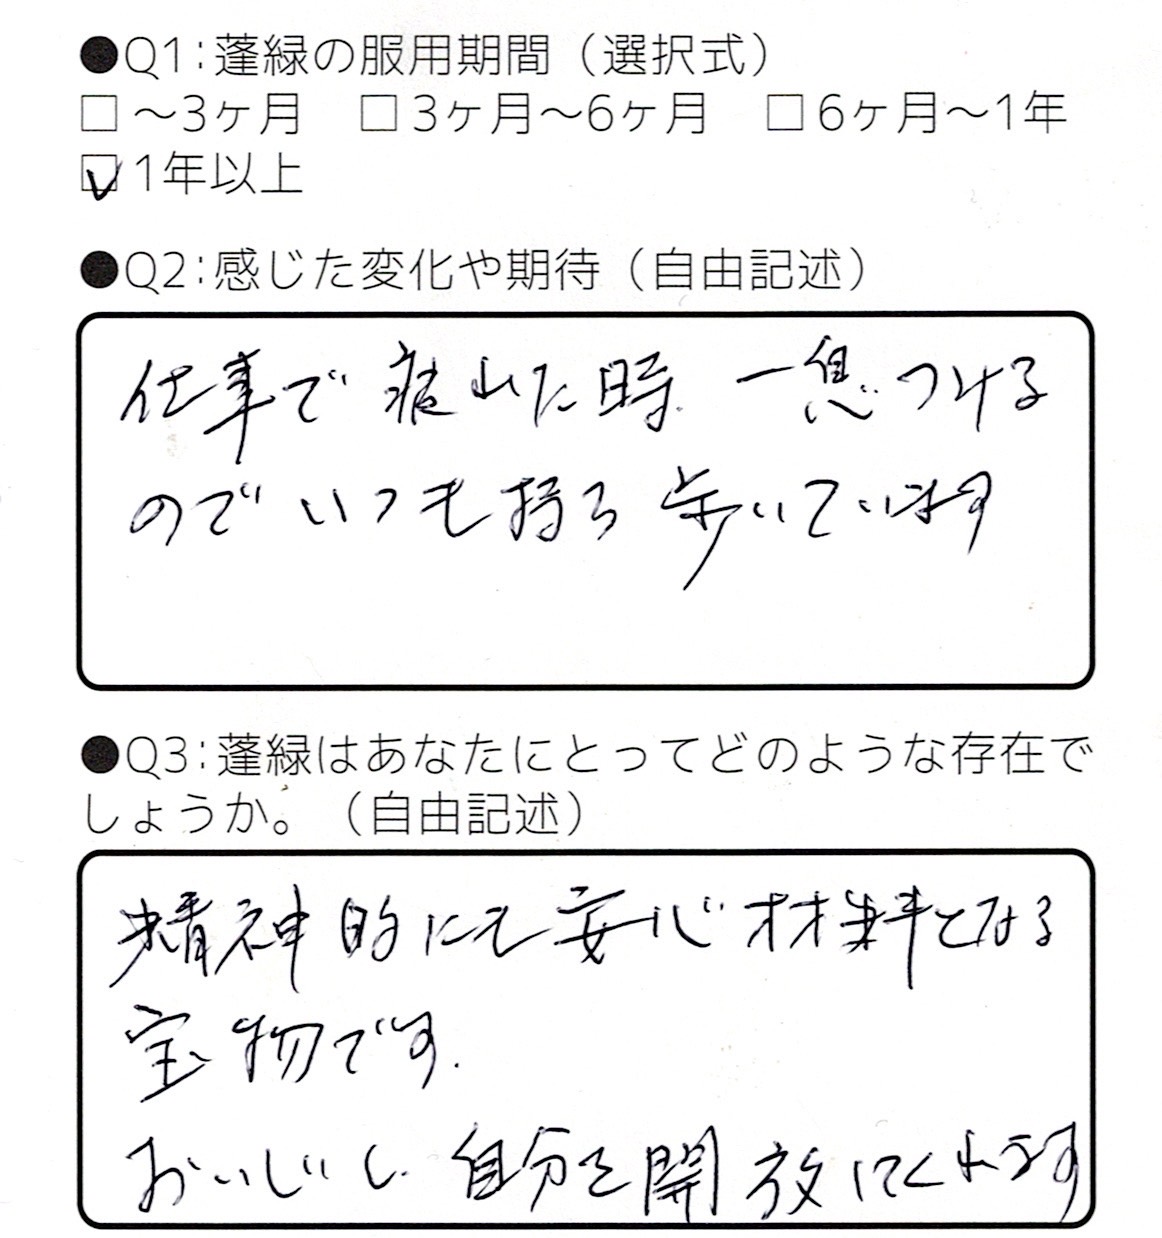 ●Q1:蓬緑の服用期間（選択式）
□ ～3ヶ月 □ 3ヶ月～6ヶ月 □ 6ヶ月～1年
☑ 1年以上
●Q2:感じた変化や期待（自由記述）
仕事で疲れた時 一息つける
のでいつも持ち歩いています
●Q3:蓬緑はあなたにとってどのような存在で
しょうか。（自由記述）
精神的にも安心材料となる
宝物です.
おいしいし 自分を開放してくれます